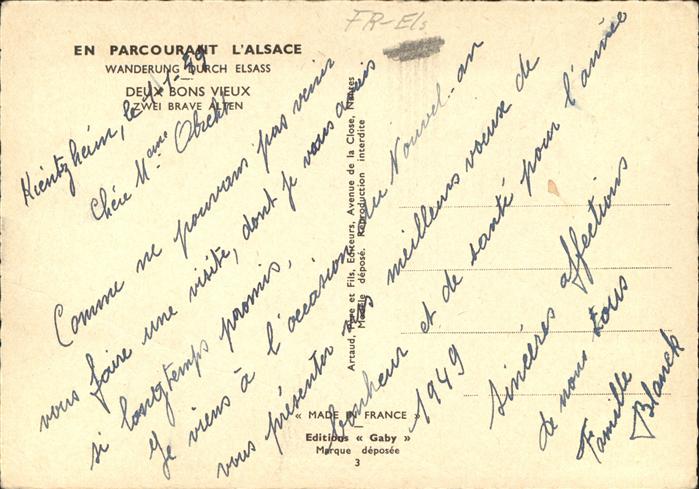 FR-Els
EN PARCOURANT L'ALSACE
WANDERUNG DURCH ELSASS
DEUX BONS VIEUX
ZWEI BRAVE ALTEN
Kientzheim, le 4-1-49
Chère Mame Obrecht
Comme ne pouvans pas venir
vous faire une visite, dont je vous avais
si longtemps promis,
je viens à l'occasion du Nouvel-an
vous présenter mes meilleurs voeux de
bonheur et de santé pour l'année
1949
Sincères affections
de nous tous
Famille
Blanck
Artaud, Père et Fils, Editeurs, Avenue de la Close, Nantes
Modèle déposé. Reproduction interdite
« MADE IN FRANCE »
Editions « Gaby »
Marque déposée
3